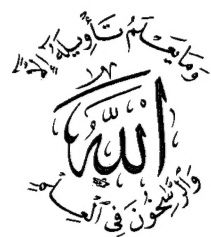 وَمَا يَعْلَمُ تَأْوِيلَهُ إِلَّا
اللَّه
وَالرَّاسِخُونَ فِي الْعِلْمِ